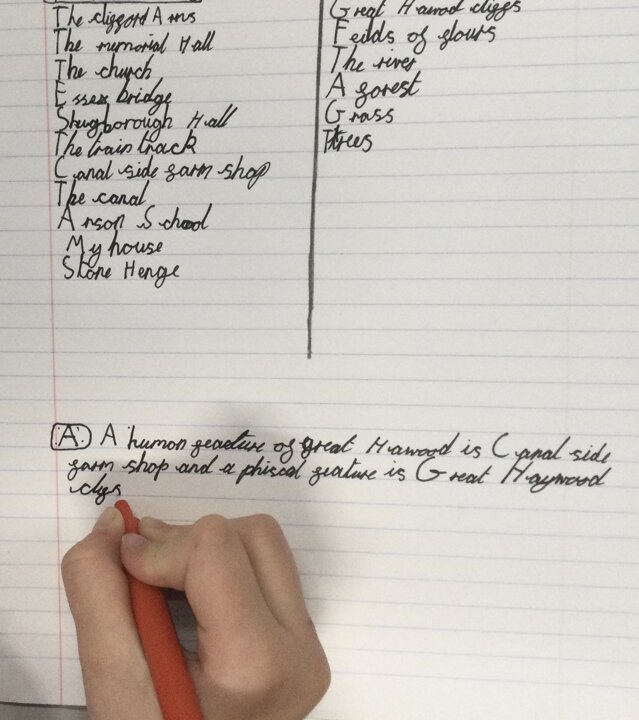 The clifford Arms
The memorial Hall
The church
Essex bridge
Shugborough Hall
The train track
Canal side farm shop
The canal
Anson School
My house
Stone Henge
Great Hawood cliffs
Feilds of flours
The river
A forest
Grass
trees
A. A human feacture of great Hawood is Canal side
farm shop and a phiscal feature is Great Haywood
clifs